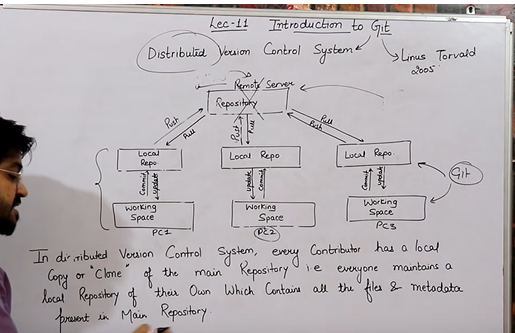 Lec-11 Introduction to Git
Distributed Version Control System
Linus Torvald
2005
Remote Server
Repository
Push
Pull
Push
Pull
Pull
Push
Local Repo
Local Repo
Local Repo
Commit
Update
Update
Commit
Commit
Update
Git
Working Space
Working Space
Working Space
PC1
PC2
PC3
In distributed Version Control System, every Contributor has a local
Copy or "Clone" of the main Repository i.e everyone maintains a
local Repository of their Own Which Contains all the files & metadata
present in Main Repository.